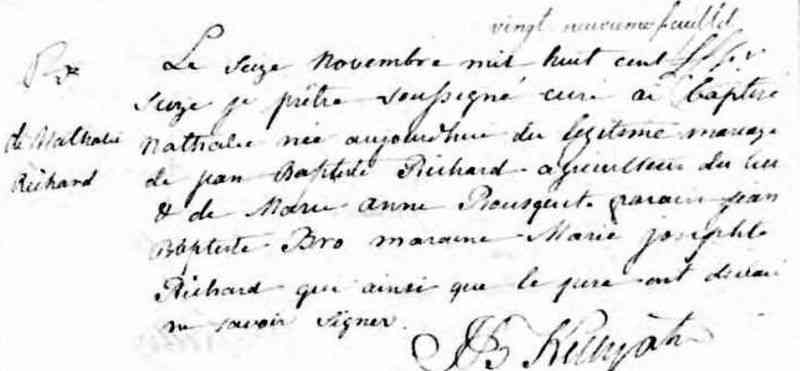 vingt neuvieme feuillet
Le seize novembre mil huit cent
B^te
seize je prêtre soussigné curé ai baptisé
de Nathalie
Nathalie née aujourdhui du legitime mariage
Richard
de jean Baptiste Richard agriculteur du lieu
& de Marie anne Bousquet parain jean
Baptiste Bro maraine Marie josephte
Richard qui ainsi que le pere ont declaré
ne savoir signer.
JB